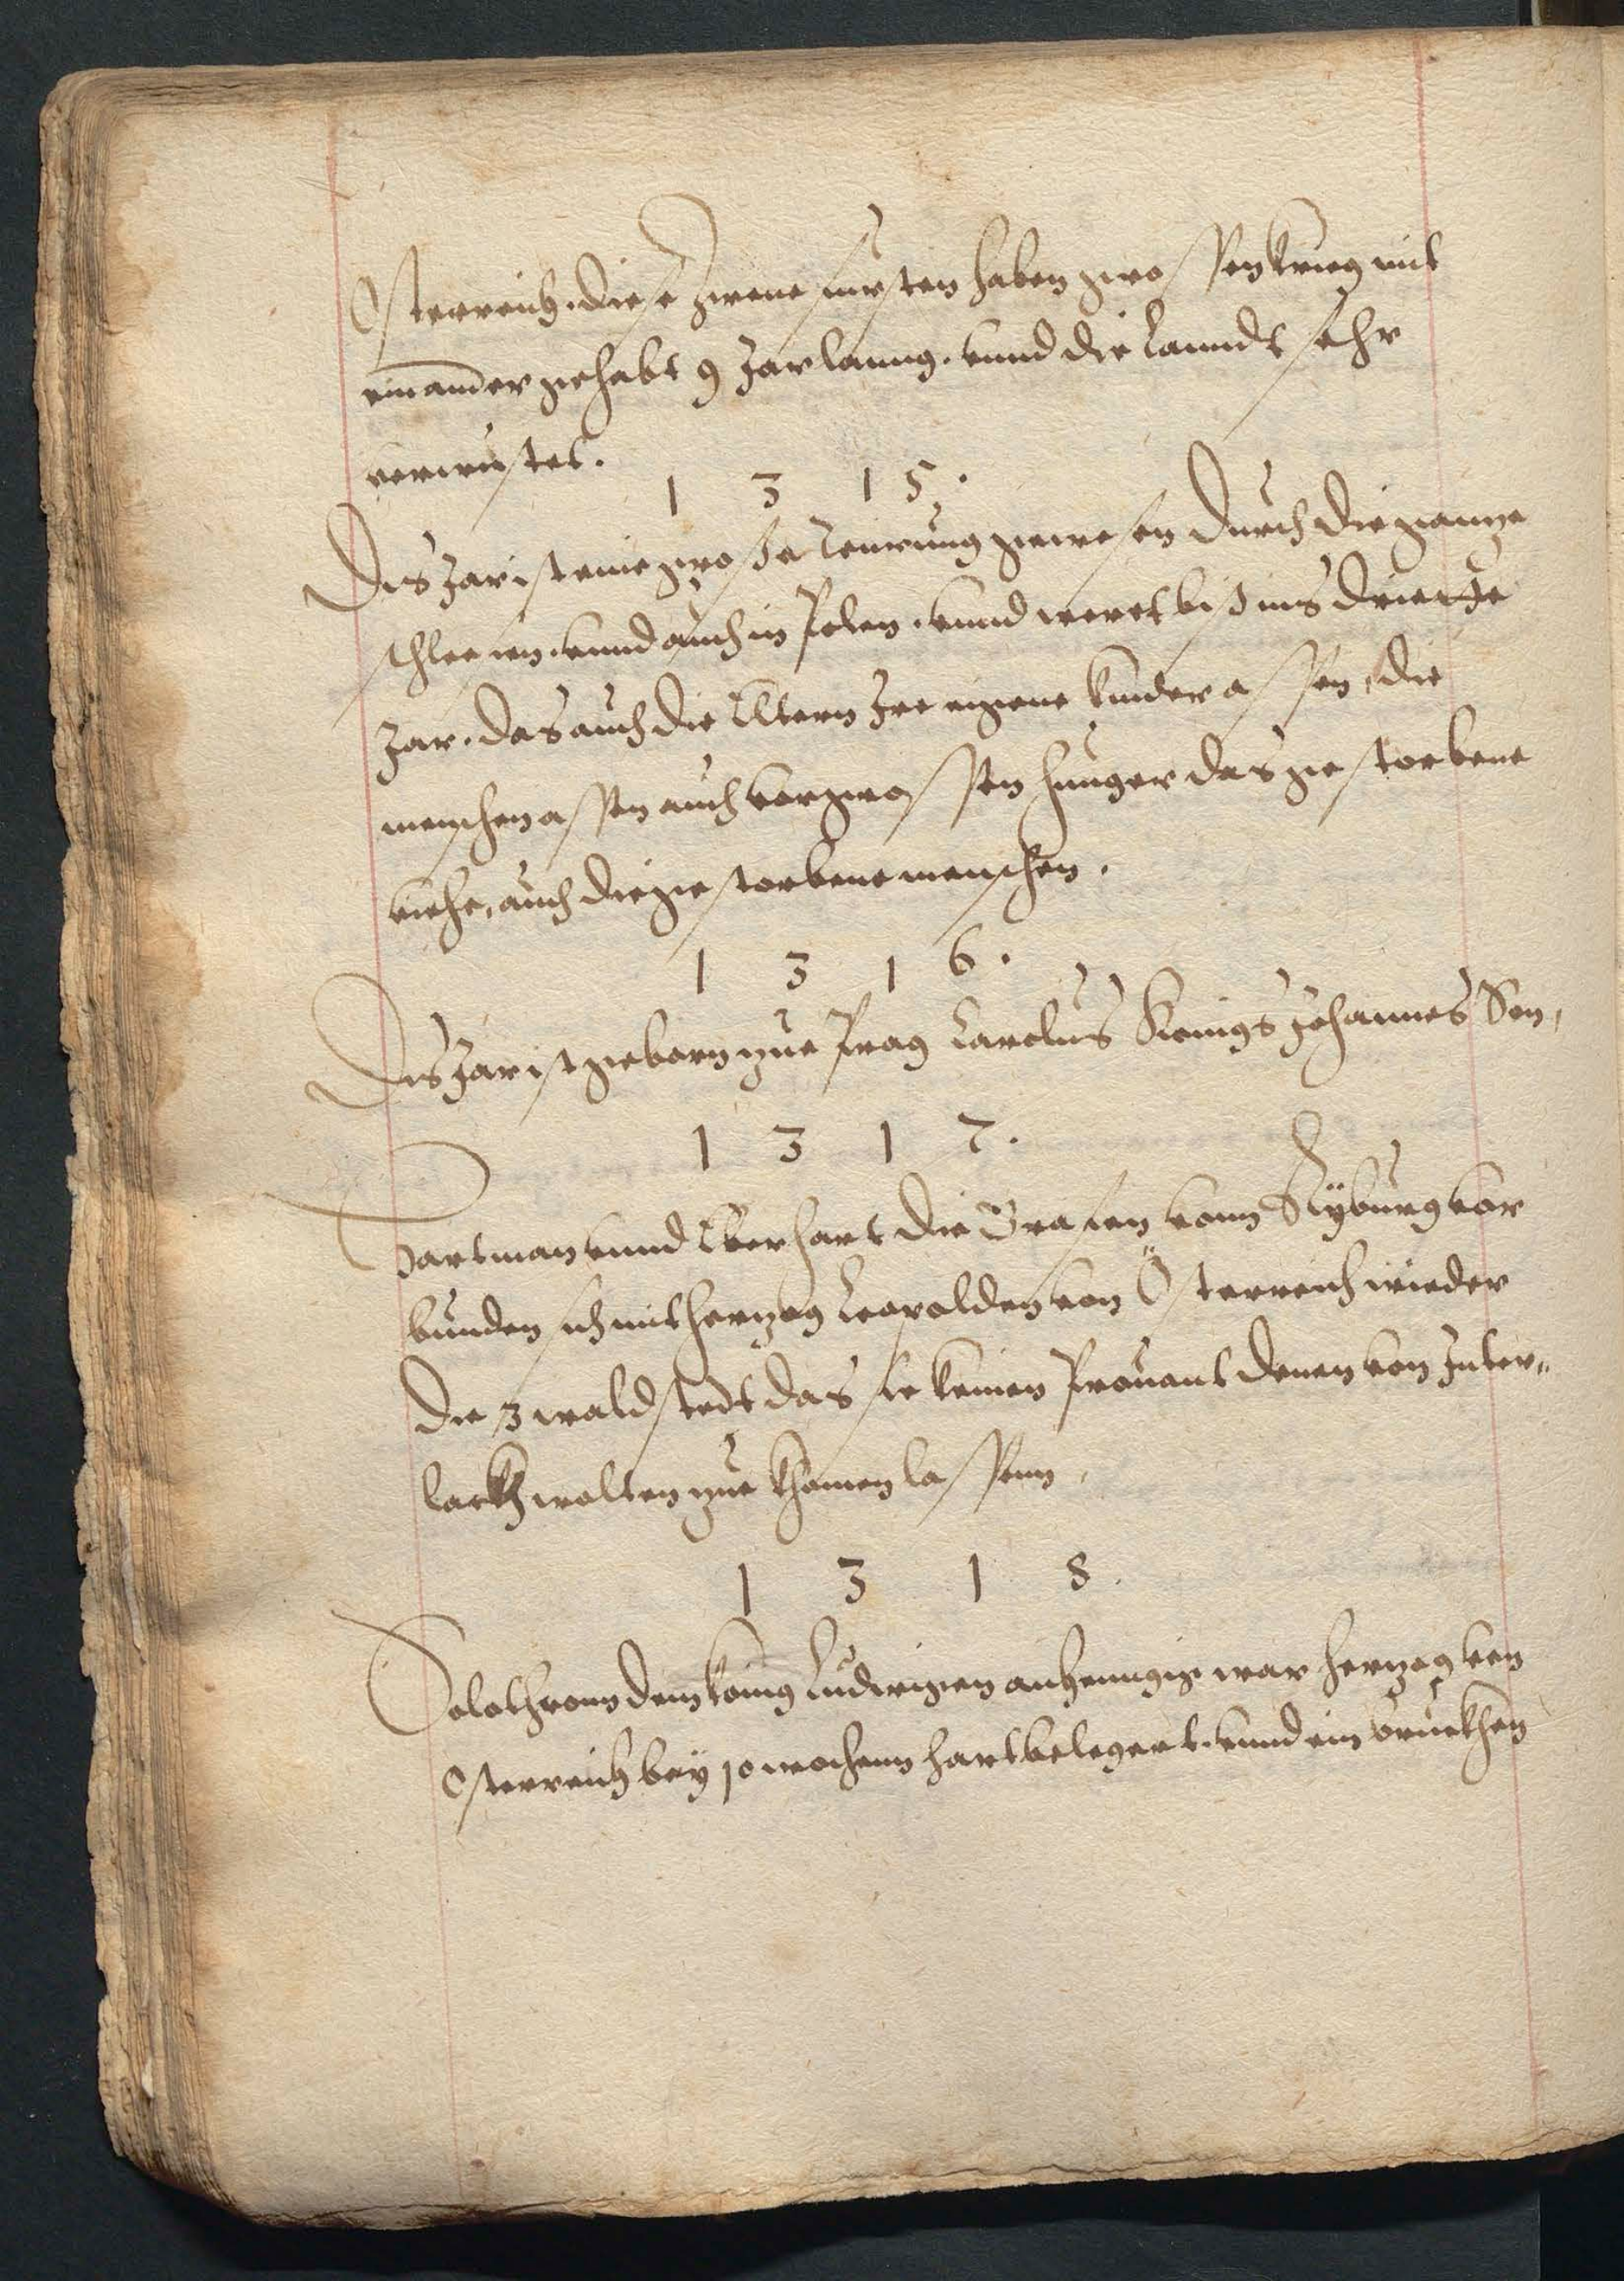 Osterreich. diese zwene fursten haben grossen krieg mit
einander gehabt 9 Jar lanng. vnnd die Lanndt sehr
verwustet.
1 3 1 5.
Dis Jar ist eine grosse Teurung gewesen durch die gantze
schlesien. vnnd auch in Polen. vnnd weret biß ins drietте
Jar. das auch die Eltern Ire eigene kinder assen, die
menschen assen auch vor grossen hunger das gestorbene
viehe, auch die gestorbene menschen.
1 3 1 6.
Dis Jar ist geborn zue Prag Carolus Konigs Johannes Son,
1 3 1 7.
Hartman vnnd Eberhart die Grafen vonn Kyburg vor
bunden sich mit hertzog Leopolden von Österreich wieder
die 3 waldstedt das sie keinen Prouant denen von Inter„
lackh wolten zue khomen lassenn,
1 3 1 8.
Solothronn dem könig Ludwigen anhenngig war hertzog von
Osterreich bey 10 wochenn hart belegert. vnnd ein bruckhen